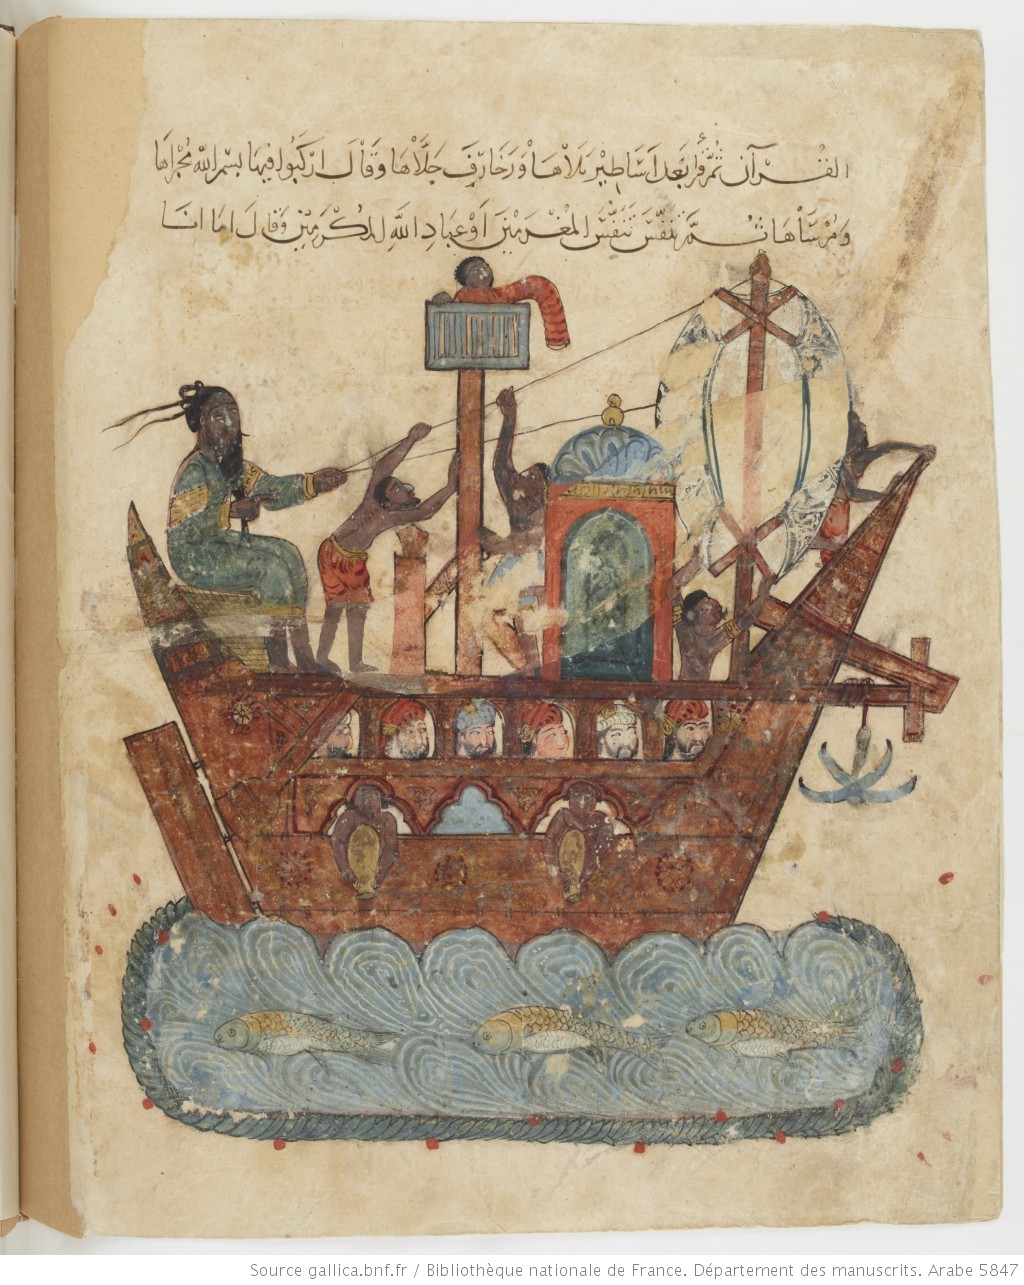 القرآن ثم قرأ بعد اساطير تلاها وزخارف جلاها وقال اركبوا فيها بسم الله مجراها
ومرساها ثم تنفس تنفس المغرمين او عباد الله المكرمين وقال اما انا
Source gallica.bnf.fr / Bibliothèque nationale de France. Département des manuscrits. Arabe 5847